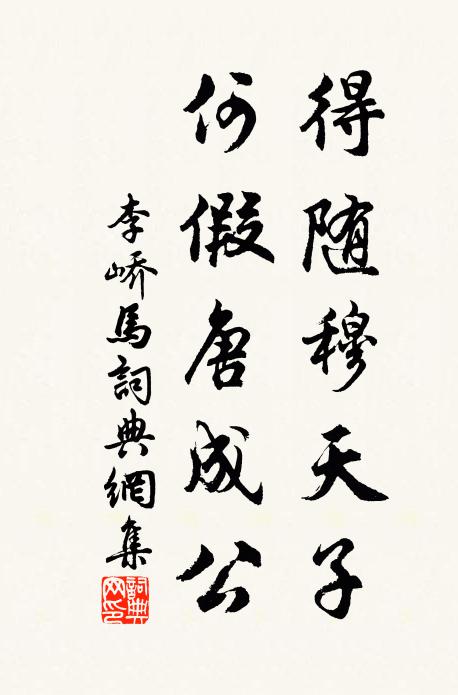 得随穆天子
何假唐成公
李嶠馬詞典網集
詞典网印